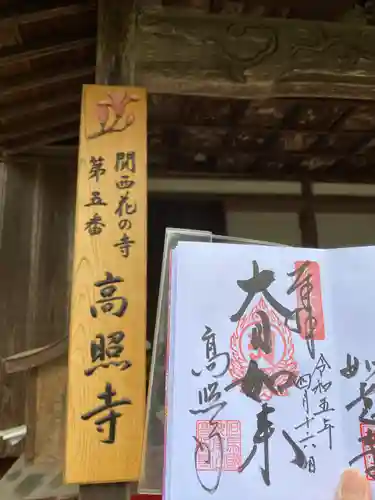 関西花の寺
第五番
高照寺
奉拝
大日如来
高照寺
令和五年
四月十六日